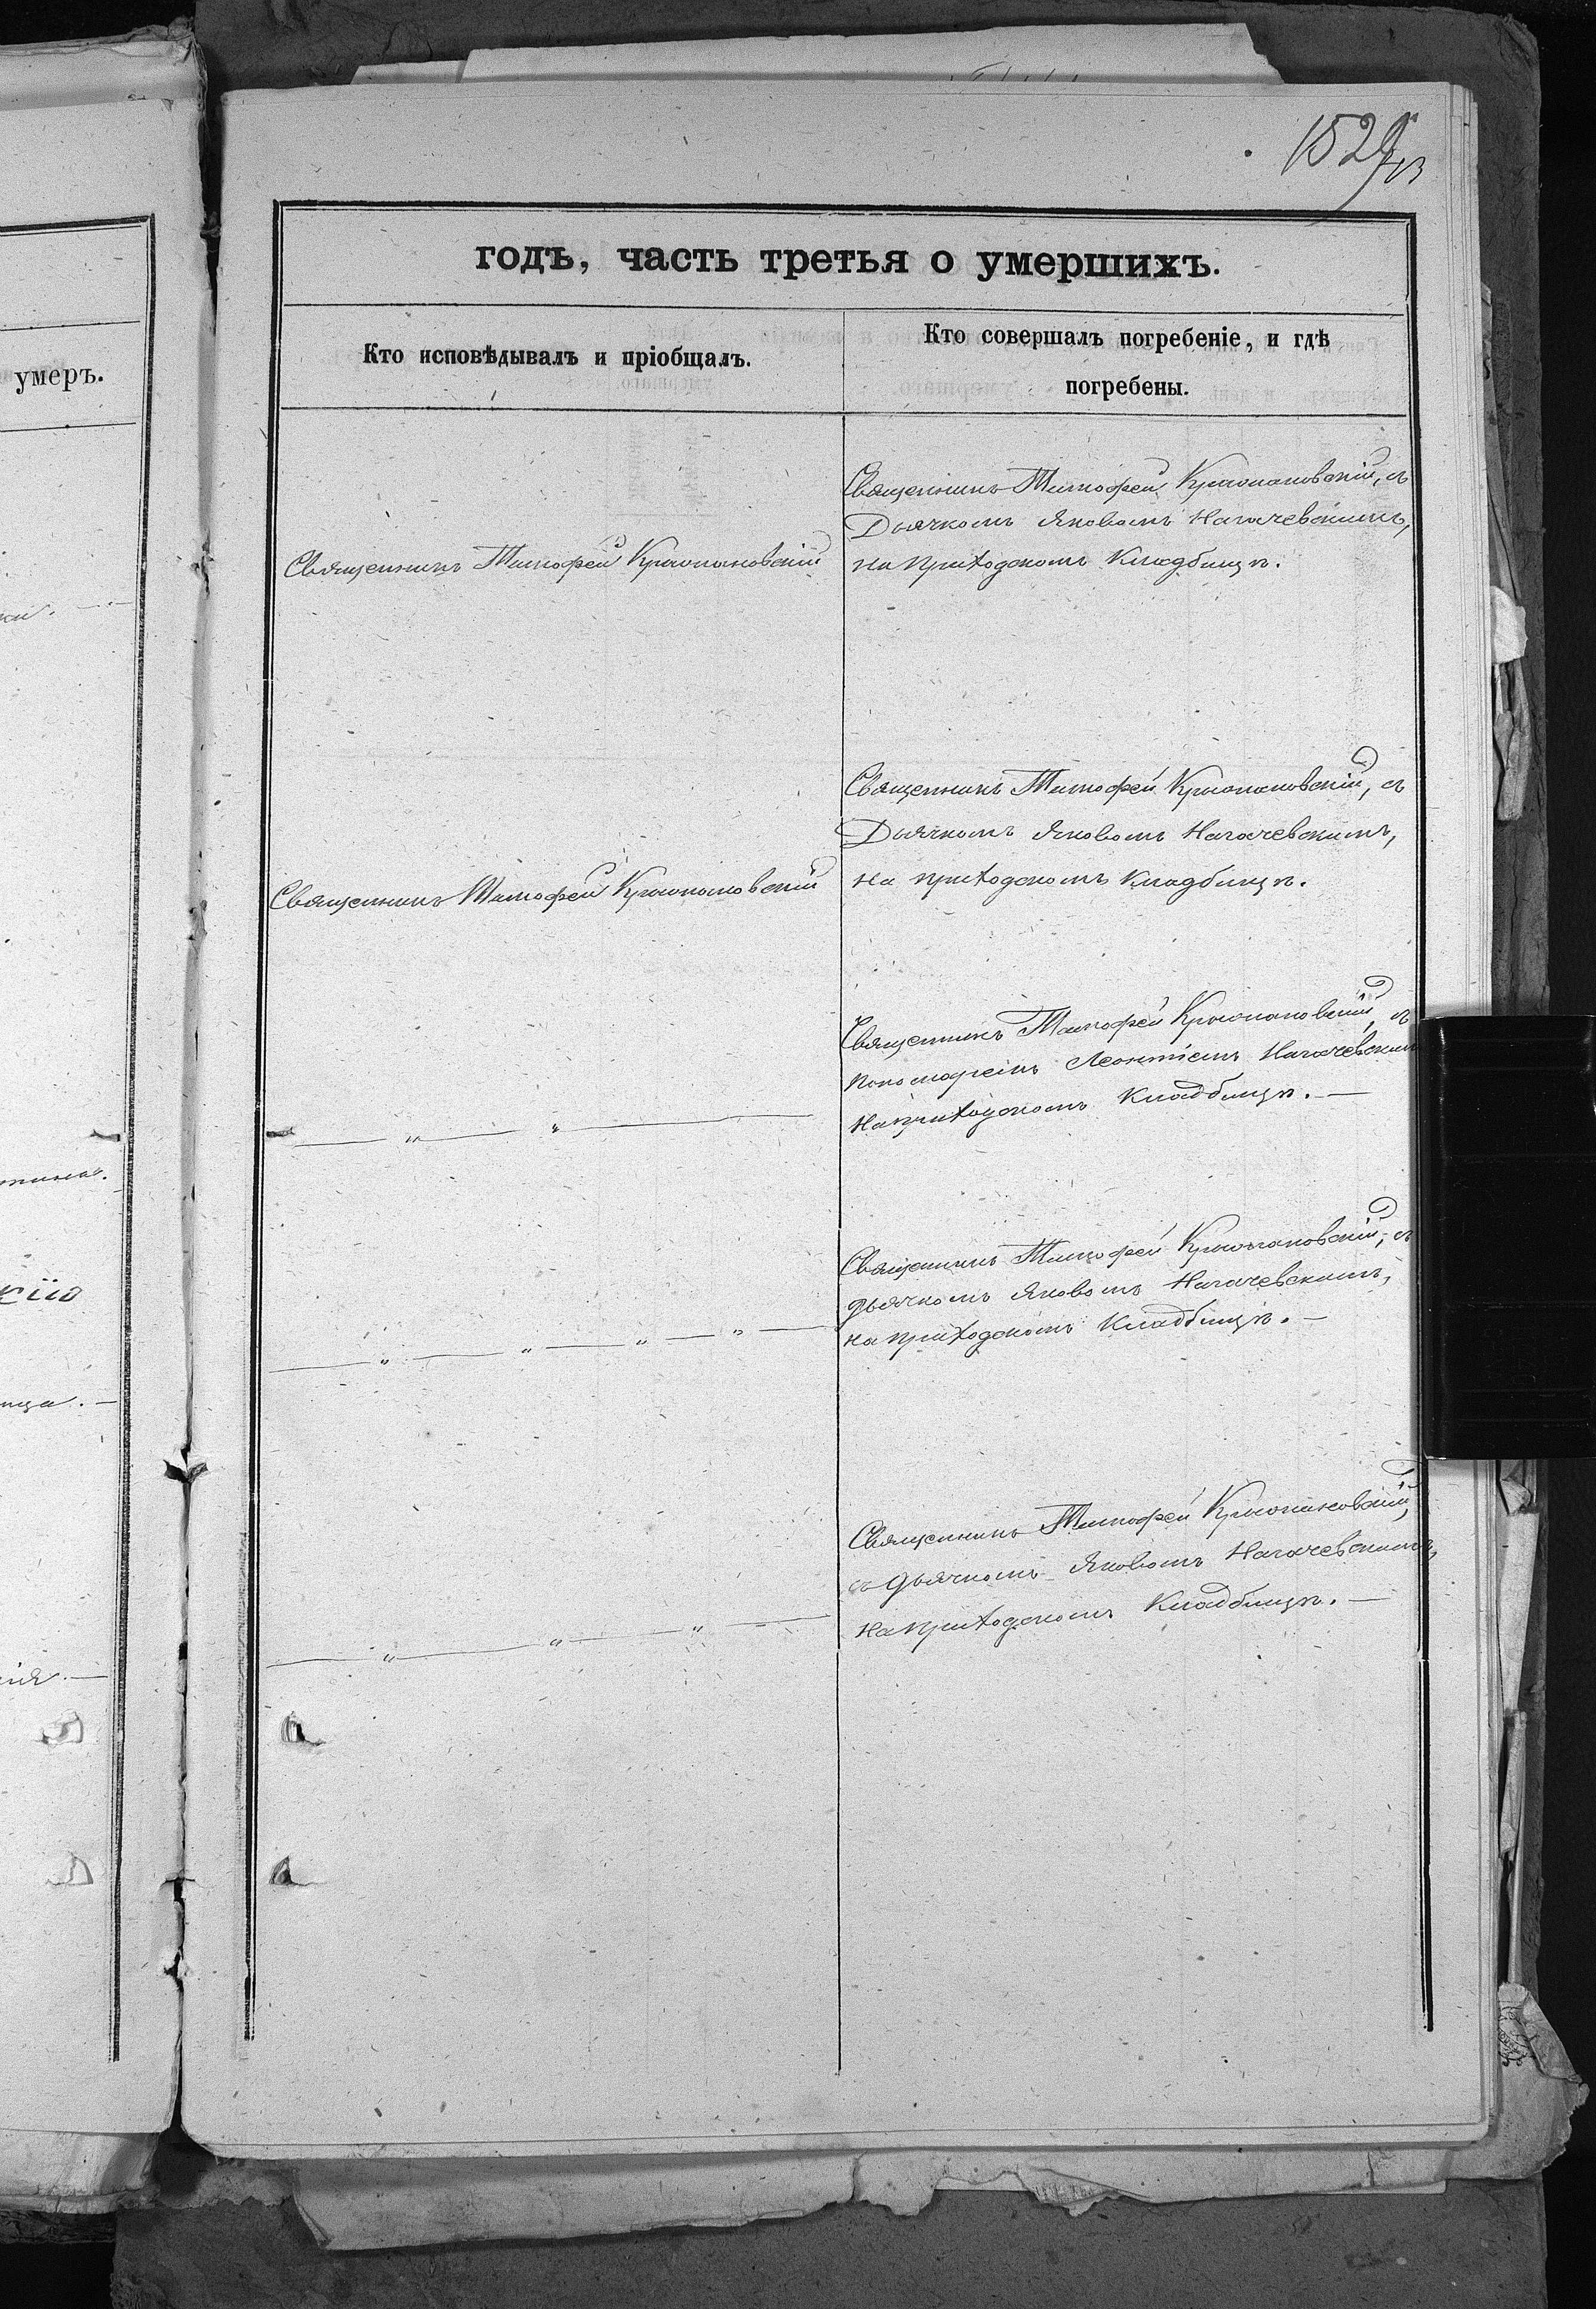 1529
годъ, часть третья о умершихъ.
умеръ.
Кто исповѣдывалъ и пріобщалъ.
Кто совершалъ погребеніе, и гдѣ
погребены.
Священникъ Тимофей Крыжановскій, съ
Дьячкомъ Яковомъ Нагачевскимъ,
на приходскомъ Кладбищѣ.
Священникъ Тимофей Крыжановскій
Священникъ Тимофей Крыжановскій, съ
Дьячкомъ Яковомъ Нагачевскимъ,
на приходскомъ кладбищѣ.
Священникъ Тимофей Крыжановскій
Священникъ Тимофей Крыжановскій, съ
пономаремъ Леонтіемъ Нагачевским
на приходскомъ Кладбищѣ. —
— " — " —
Священникъ Тимофей Крыжановскій, съ
дьячкомъ Яковомъ Нагачевскимъ,
на приходскомъ Кладбищѣ. —
— " — " — " — " —
Священникъ Тимофей Крыжановскій,
съ дьячкомъ Яковомъ Нагачевскимъ,
на приходскомъ Кладбищѣ. —
— " — " — " —